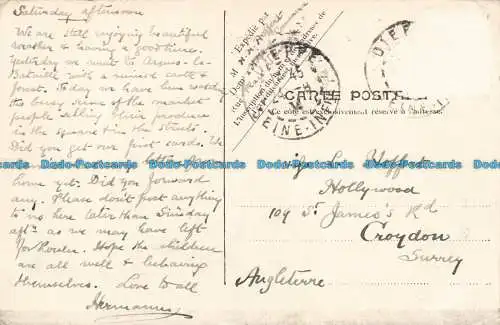 Saturday afternoon
We are still enjoying beautiful
weather & having a good time.
Yesterday we went to Arques-la-
Bataille with a ruined castle &
forest. To day we have been watching
the busy scene of the market
people selling their produce
in the square & in the streets.
Did you get our first cards. We
home yet. Did you forward
any. Please don't post anything
to us here later than Sunday
aftn as we may have left
for Rouen. Hope the children
are all well & behaving
themselves. Love to all
Hermann
Expédié par
M
DIEPPE
SEINE-INF
DIEPPE
CARTE POSTALE
Ce côté est exclusivement réservé à l'adresse.
Hollywood
109 St James's Rd
Croydon
Surrey
Angleterre
Dodo-Postcards Dodo-Postcards Dodo-Postcards Dodo-Postcards Dodo-Postcards
Dodo-Postcards Dodo-Postcards Dodo-Postcards Dodo-Postcards Dodo-Postcards